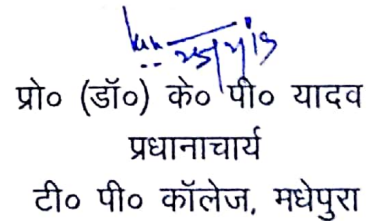 प्रो० (डॉ०) के० पी० यादव
प्रधानाचार्य
टी० पी० कॉलेज, मधेपुरा